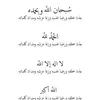 سُبْحَانَ اللهِ وَبِحَمْدِهِ
عدد خلقه ورضا نفسه وزنة عرشه ومداد كلماته
الْحَمْدُ لِلهِ
عدد خلقه ورضا نفسه وزنة عرشه ومداد كلماته
لَا إِلَهَ إِلَّا اللهُ
عدد خلقه ورضا نفسه وزنة عرشه ومداد كلماته
اللهُ أَكْبَرُ
عدد خلقه ورضا نفسه وزنة عرشه ومداد كلماته